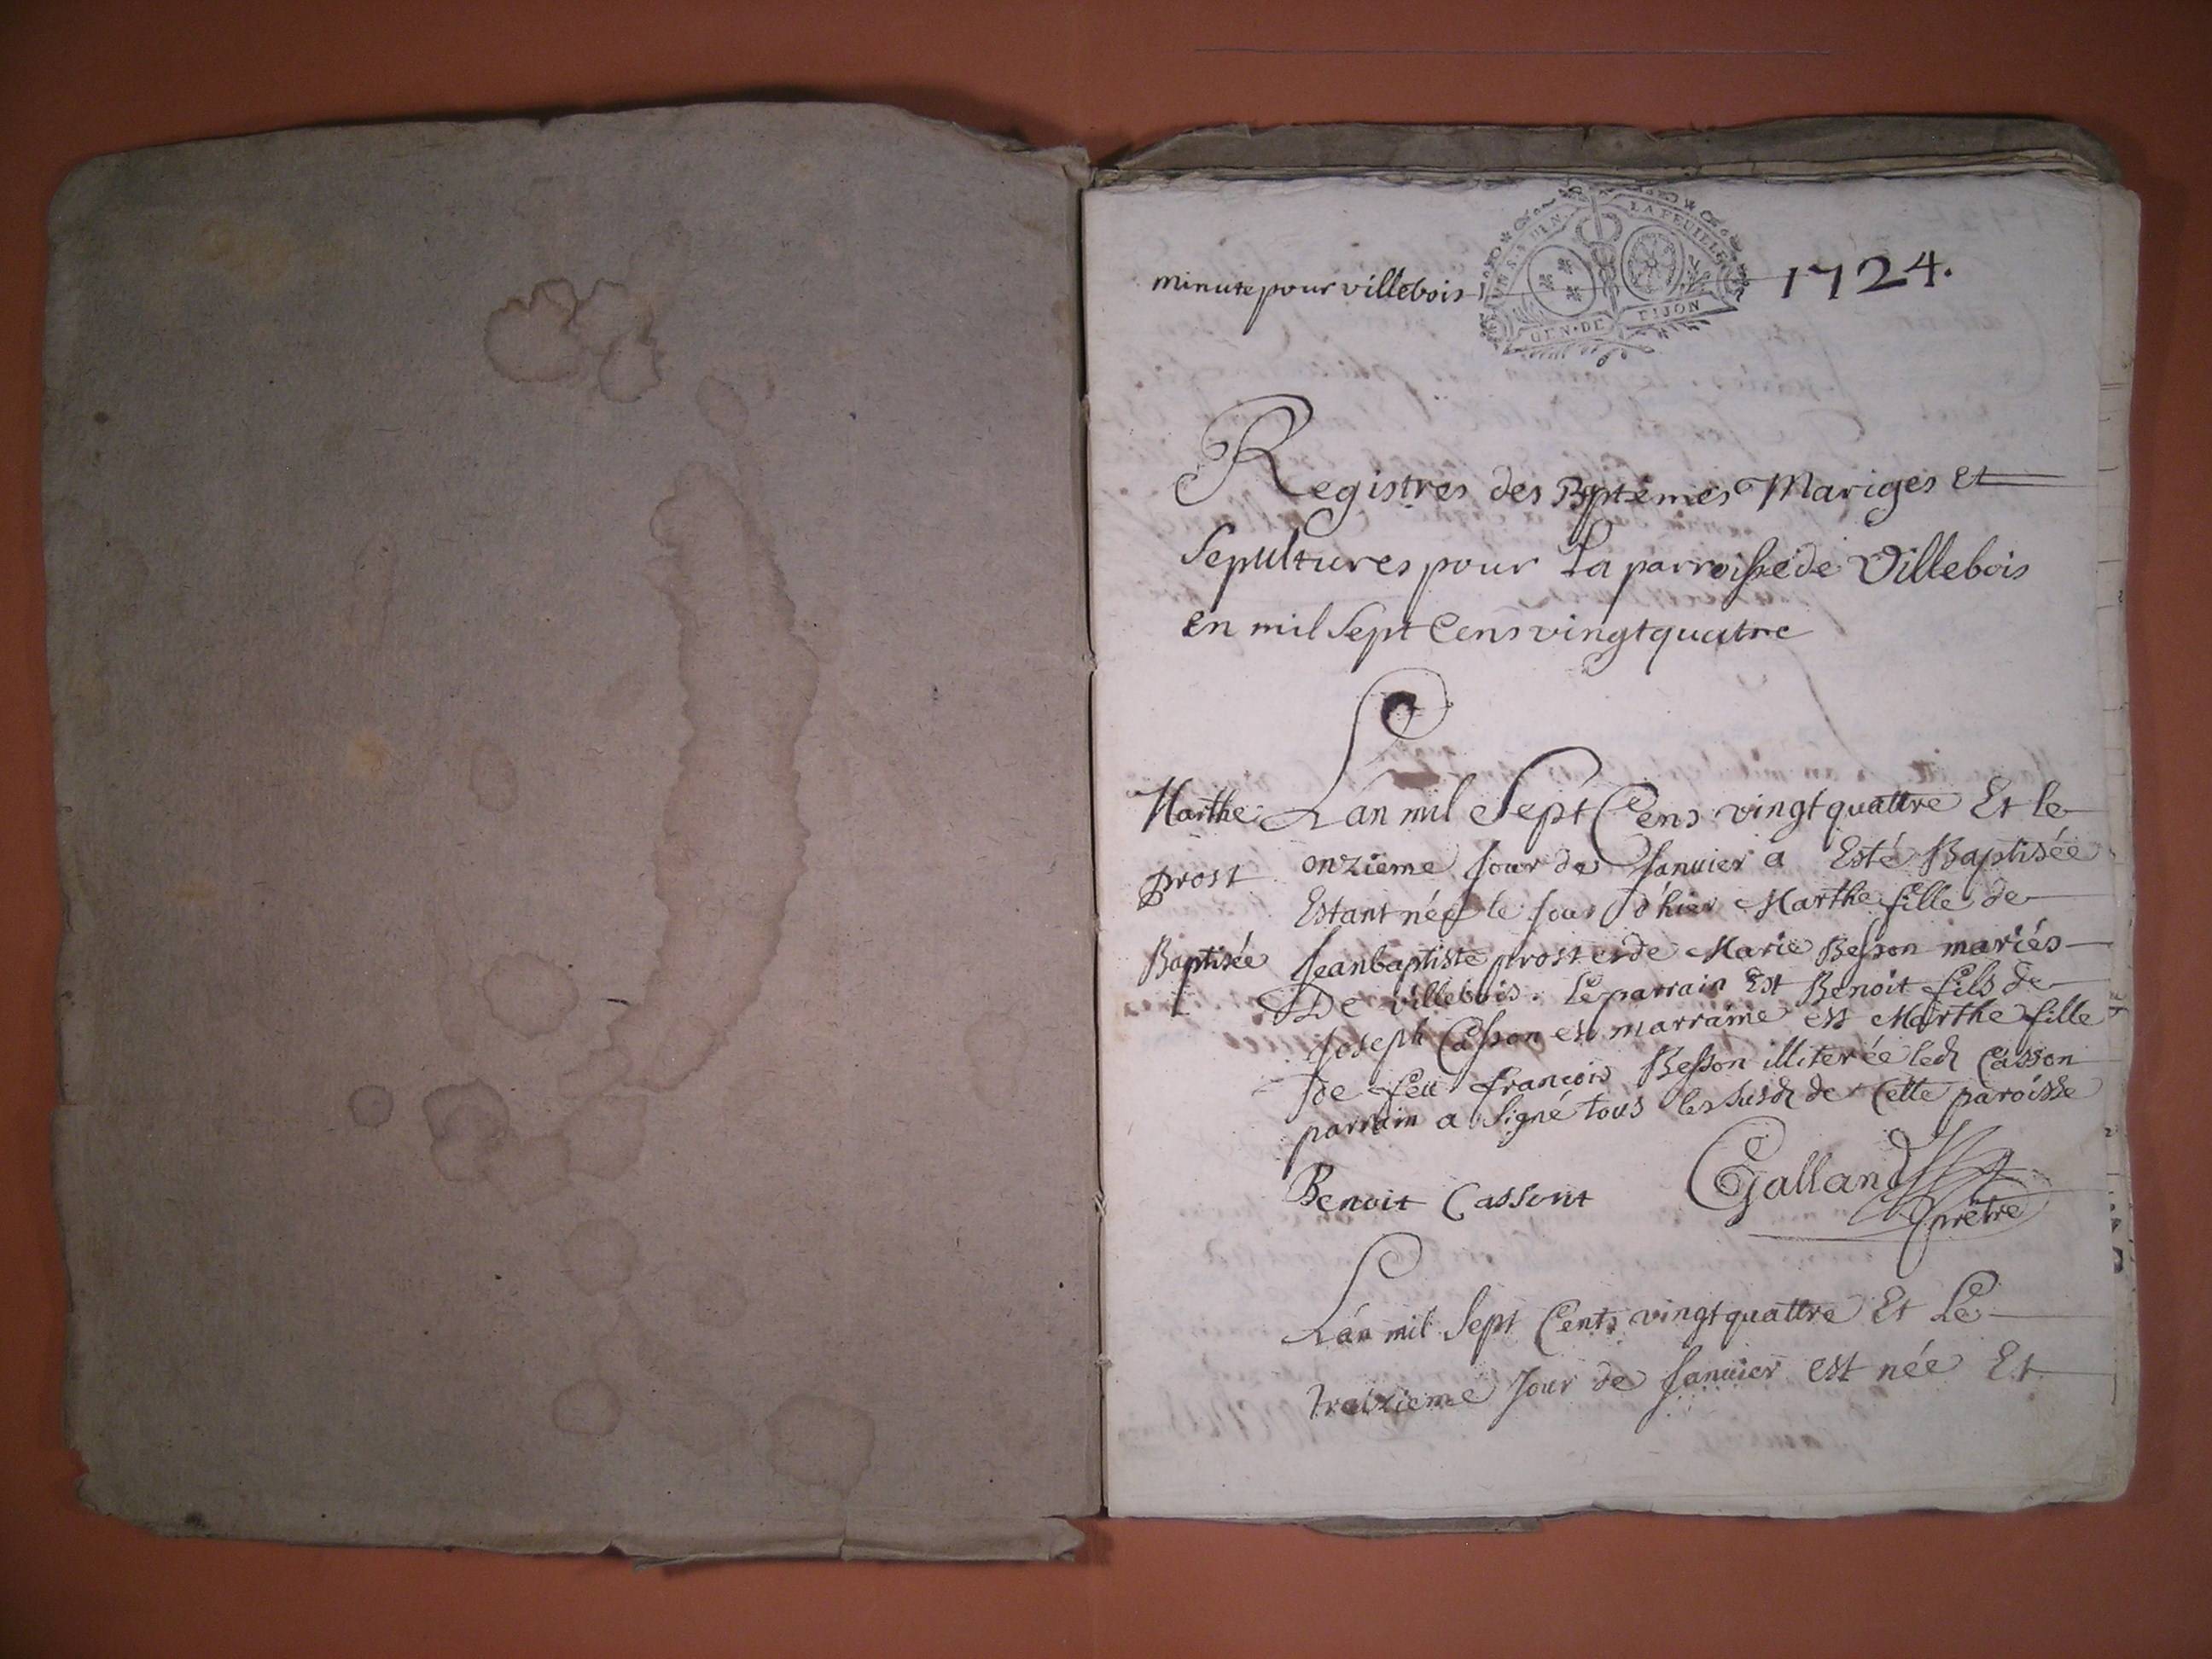 UN S. SIX DEN. LA FEUILLE
GEN. DE DIJON
minute pour villebois 1724.
Registres des Bptemes Mariges et
Sepultures pour La parroisse de Villebois
en mil Sept Cens vingt quatre
Marthe
prost
Baptisée
Lan mil Sept Cens vingt quattre Et le
onzieme Jour de Januier a Esté Baptisée
Estant née le Jour d'hier Marthe fille de
Jeanbaptiste prost et de Marie Besson mariés
De villebois. Le parrain Est Benoit fils de
Joseph Casson et marraine est Marthe fille
de feu francois Besson illiterée led Casson
parrain a signé tous les susd de Cette paroisse
Benoit Cassont Galland
prêtre
Lan mil Sept Cents vingt quattre Et Le
treizieme Jour de Januier est née Et